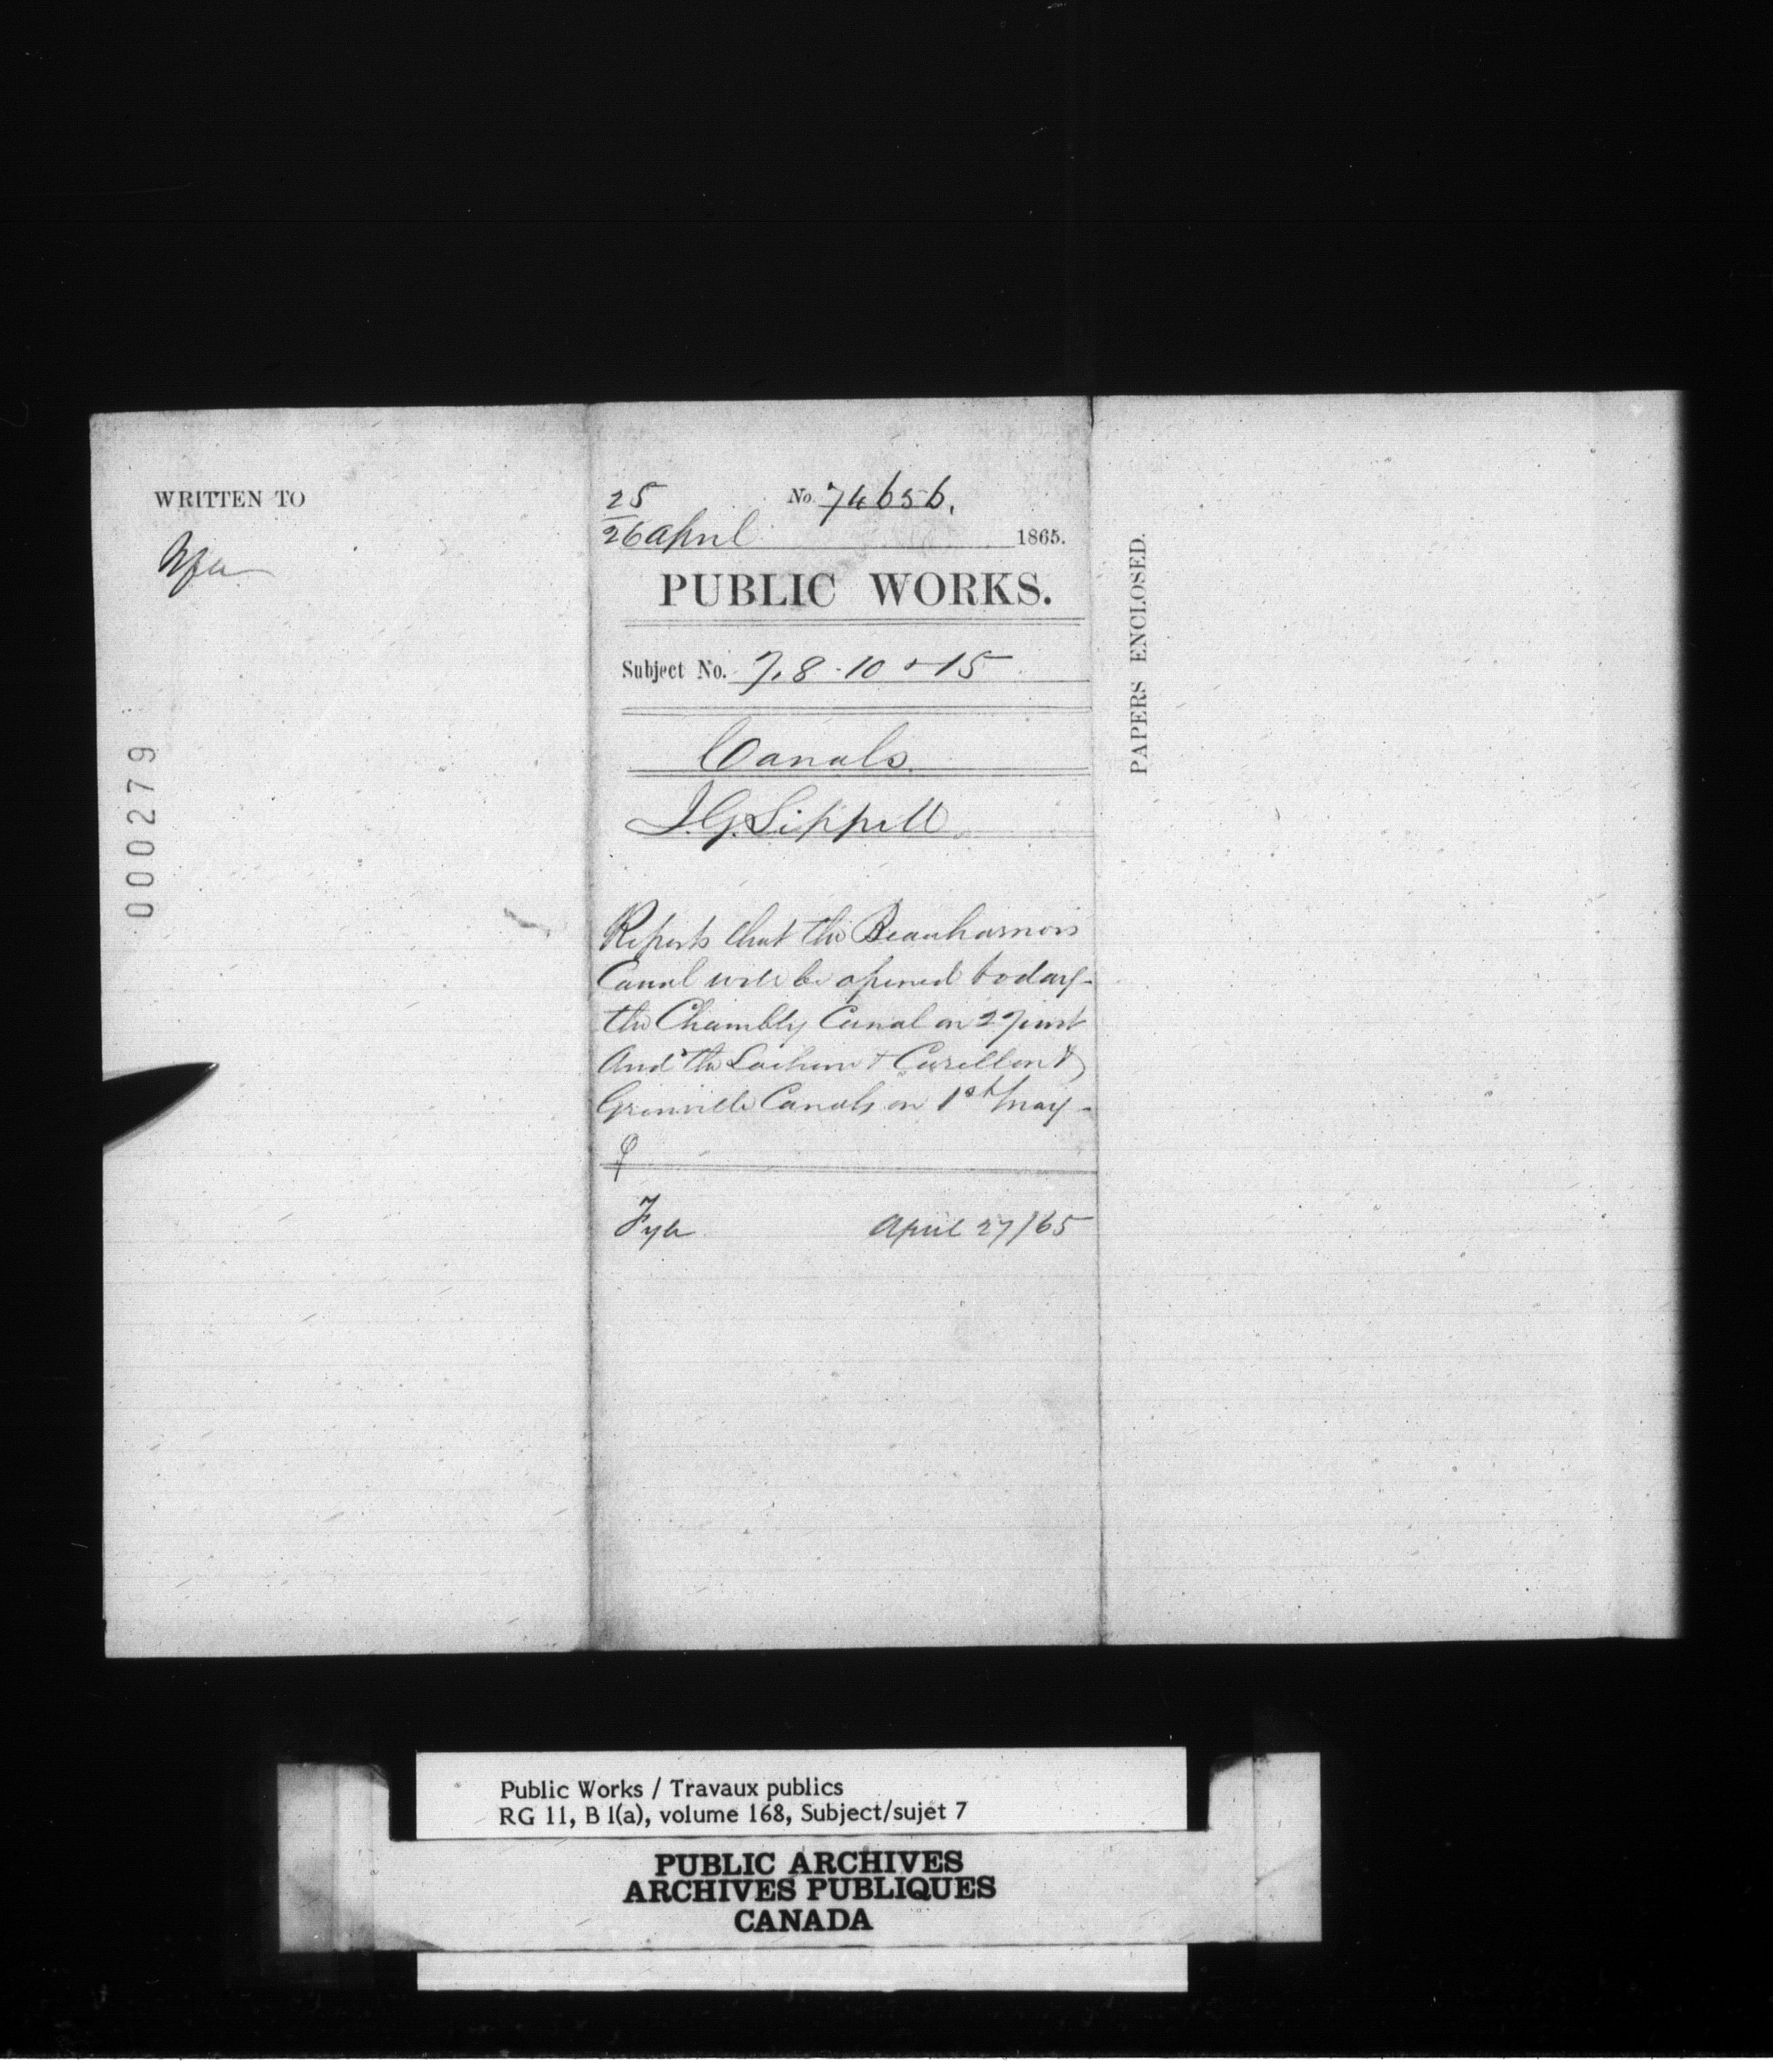 WRITTEN TO
000279
25
No. 74656.
26 April 1865.
PUBLIC WORKS.
Subject No. 7. 8 - 10 & 15
Canals.
J. G. Sippell
Reports that the Beauharnois
Canal will be opened today -
the Chambly Canal on 27 inst
And the Lachine & Carillon &
Grenville Canals on 1st May -
April 27/65
PAPERS ENCLOSED.
Public Works / Travaux publics
RG 11, B 1(a), volume 168, Subject/sujet 7
PUBLIC ARCHIVES
ARCHIVES PUBLIQUES
CANADA